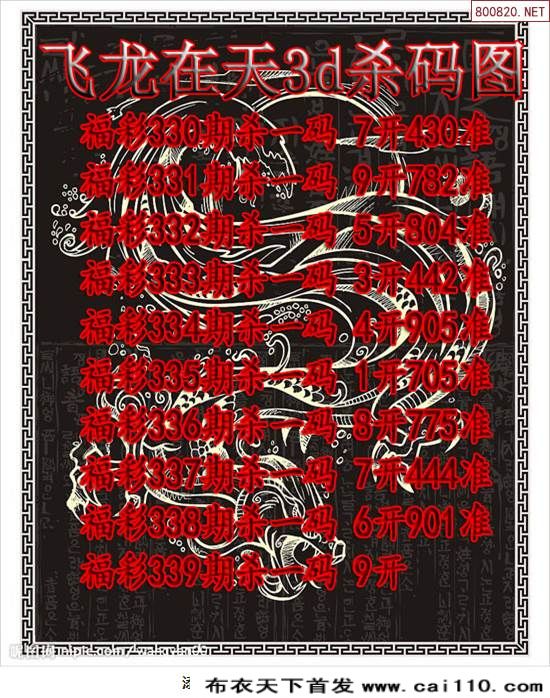 800820.NET
飞龙在天3d杀码图
福彩330期杀一码 7开430准
福彩331期杀一码 9开782准
福彩332期杀一码 5开804准
福彩333期杀一码 3开442准
福彩334期杀一码 4开905准
福彩335期杀一码 1开705准
福彩336期杀一码 8开775准
福彩337期杀一码 7开444准
福彩338期杀一码 6开901准
福彩339期杀一码 9开
布衣天下首发 www.cai110.com